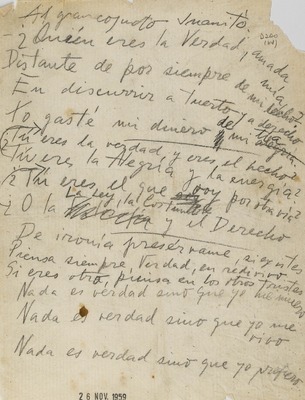 Al gran cojudo Juanito:
-¿Quién eres la Verdad, amada mía,
Distante de por siempre de mi hecho
En discurrir a tuerto y a derecho
Yo gasté mi dinero y mi alegría
¿Tú eres la verdad y eres el hecho
Tú eres la Alegría y la energía?
¿Tú eres el que soy por otra vía?
¿O la Ley, la Costumbre
y el Derecho
De ironía presérvame, si existes
Piensa siempre Verdad, en redivivo
Si eres otro, piensa en los otros tristes
Nada es verdad sino que yo me muero
Nada es verdad sino que yo me
vivo
Nada es verdad sino que yo prefiero
26 NOV. 1959